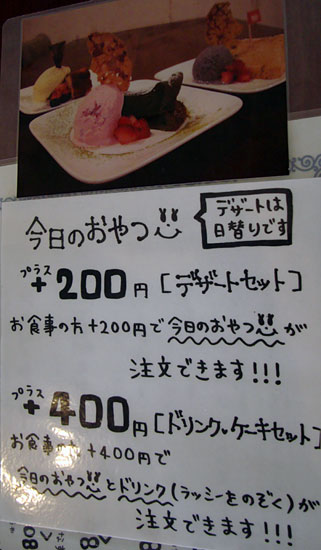 今日のおやつ
デザートは
日替りです
プラス
+200円 [デザートセット]
お食事の方+200円で今日のおやつが
注文できます!!!
プラス
+400円 [ドリンク・ケーキセット]
お食事の方+400円で
今日のおやつとドリンク(ラッシーをのぞく)が
注文できます!!!